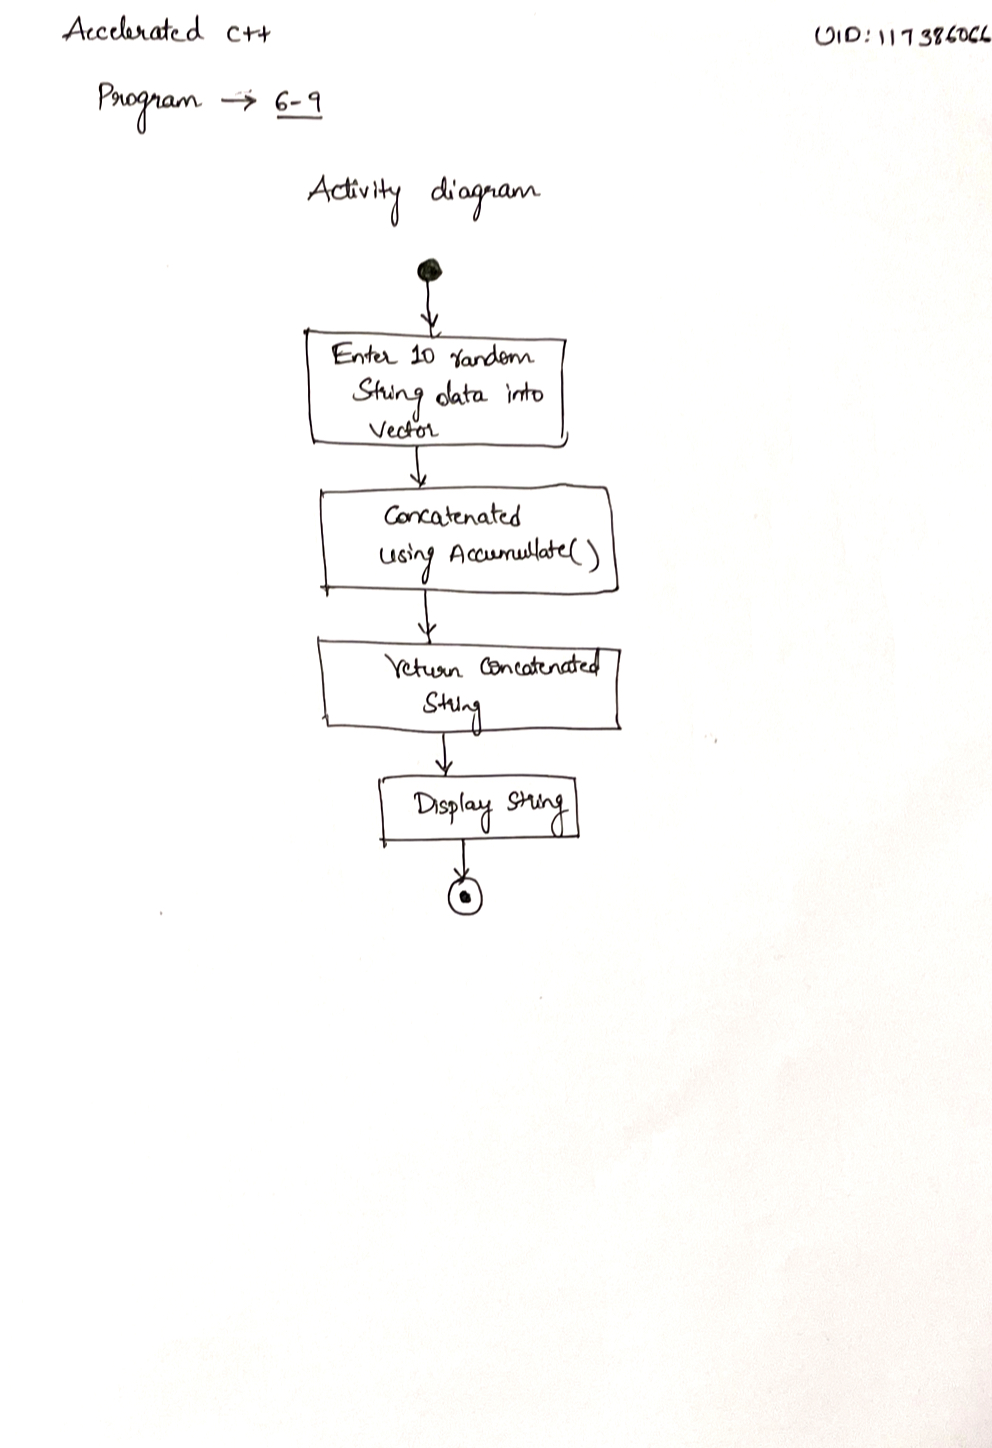 Accelerated C++
UID: 117386066
Program → 6-9
Activity diagram
Enter 10 random
String data into
Vector
Concatenated
using Accumullate()
return Concatenated
String
Display String